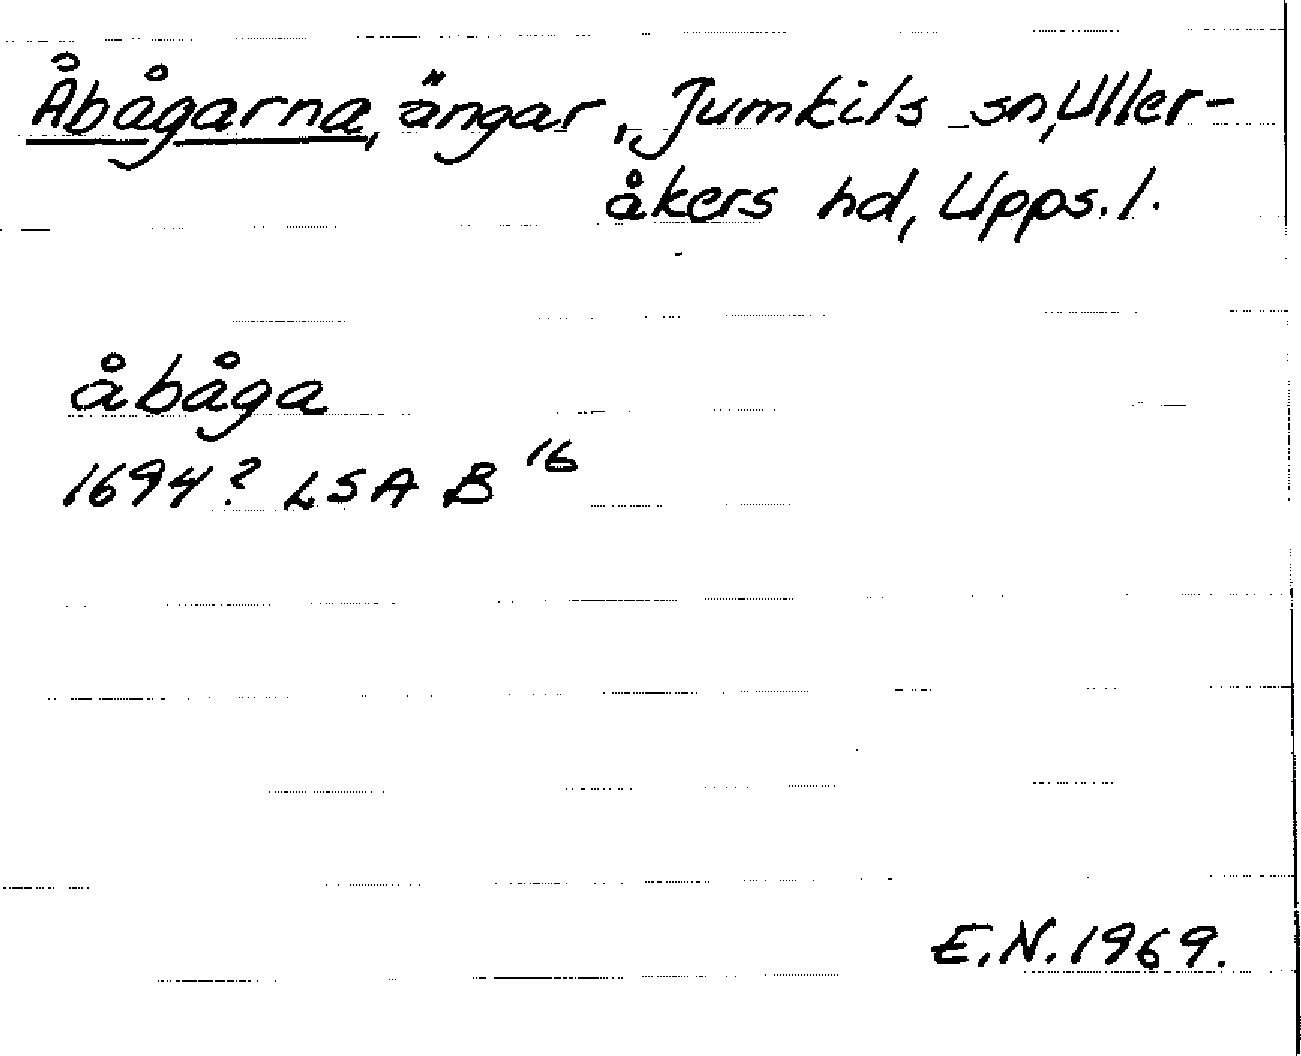 Åbågarna, ängar, Jumkils sn, Uller-
åkers hd, Upps. l.
åbåga
1694? LSA B 16
E.N. 1969.